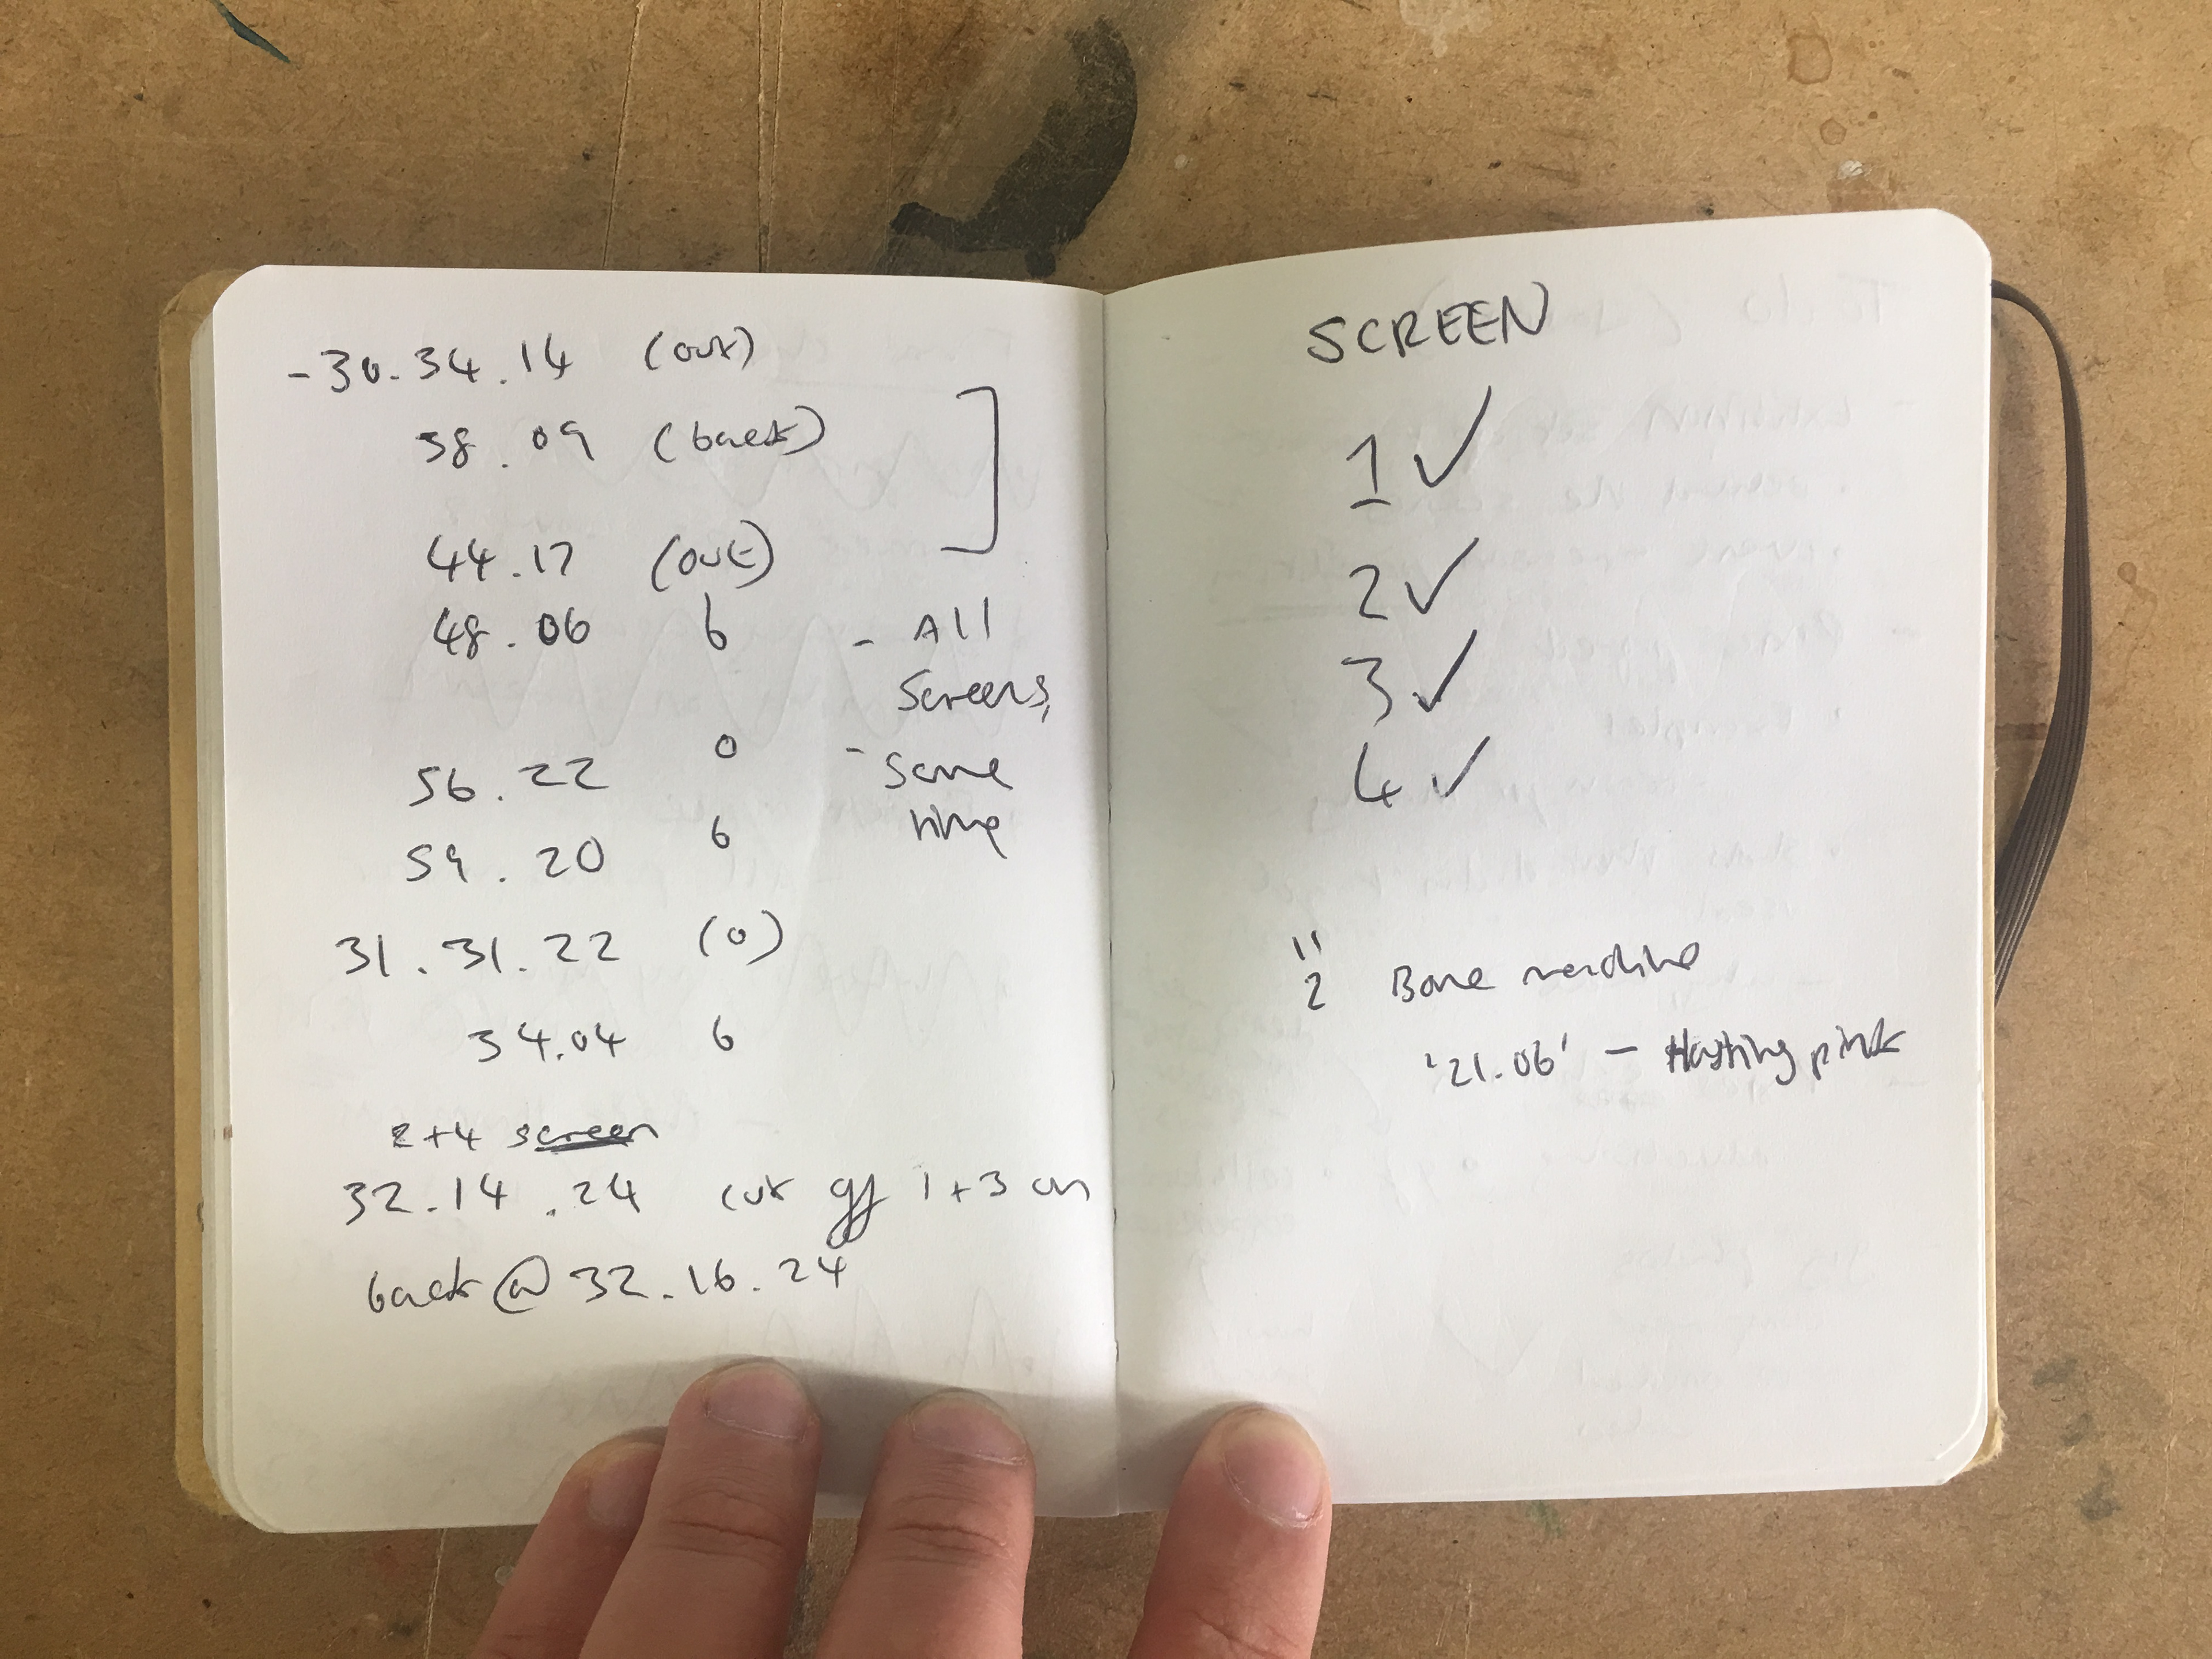 -30.34.14 (out)
38.09 (back)
44.17 (out)
48.06 b - All
Screens,
56.22 o - same
time
59.20 b
31.31.22 (o)
34.04 b
2+4 screen
32.14.24 cut off 1+3 on
back @ 32.16.24
SCREEN
1 ✓
2 ✓
3 ✓
4 ✓
11
2 Bone machine
'21.06' - pink